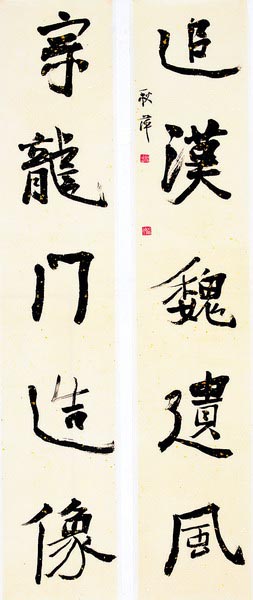 追漢魏遺風
秋萍
宗龍门造像